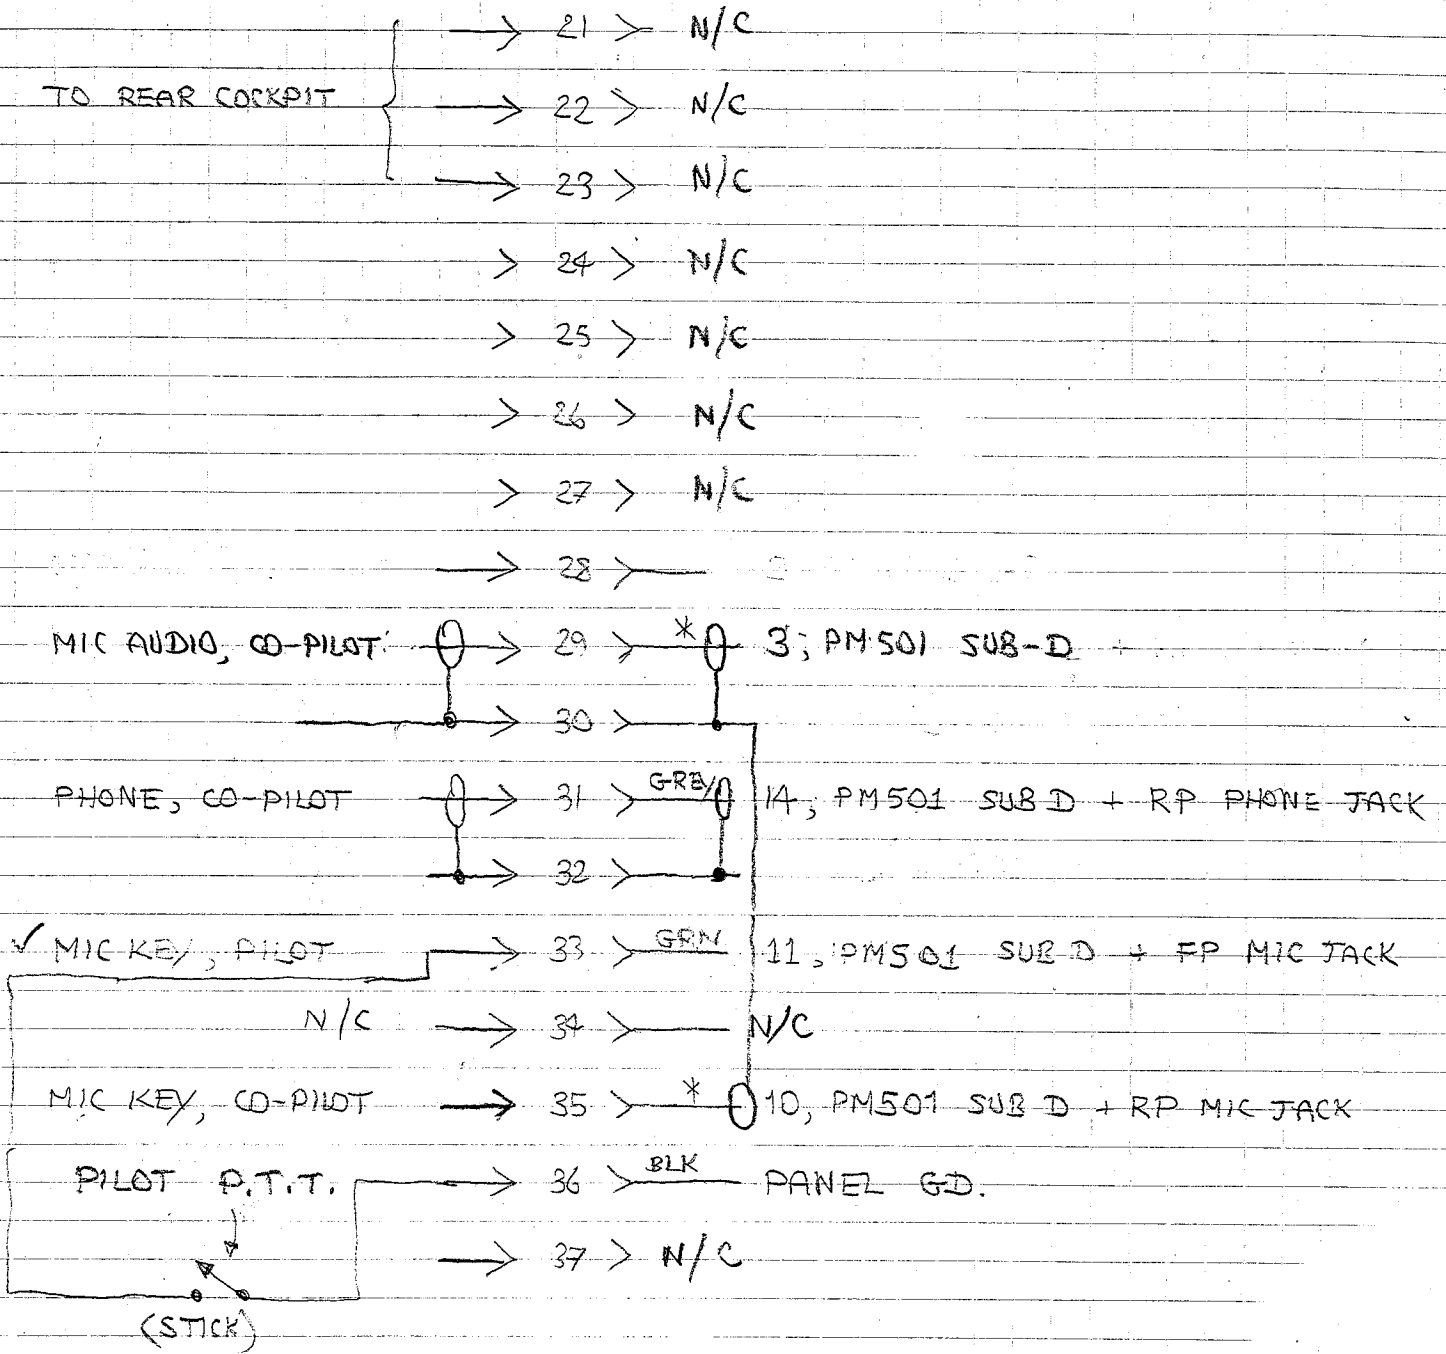 21 N/C
TO REAR COCKPIT 22 N/C
23 N/C
24 N/C
25 N/C
26 N/C
27 N/C
28
MIC AUDIO, CO-PILOT 29 * 3; PM501 SUB-D
30
PHONE, CO-PILOT 31 GREY 14, PM501 SUB D + RP PHONE JACK
32
✓ MIC KEY, PILOT 33 GRN 11, PM501 SUB D + FP MIC JACK
N/C 34 N/C
MIC KEY, CO-PILOT 35 * 10, PM501 SUB D + RP MIC JACK
PILOT P.T.T. 36 BLK PANEL GD.
37 N/C
(STICK)